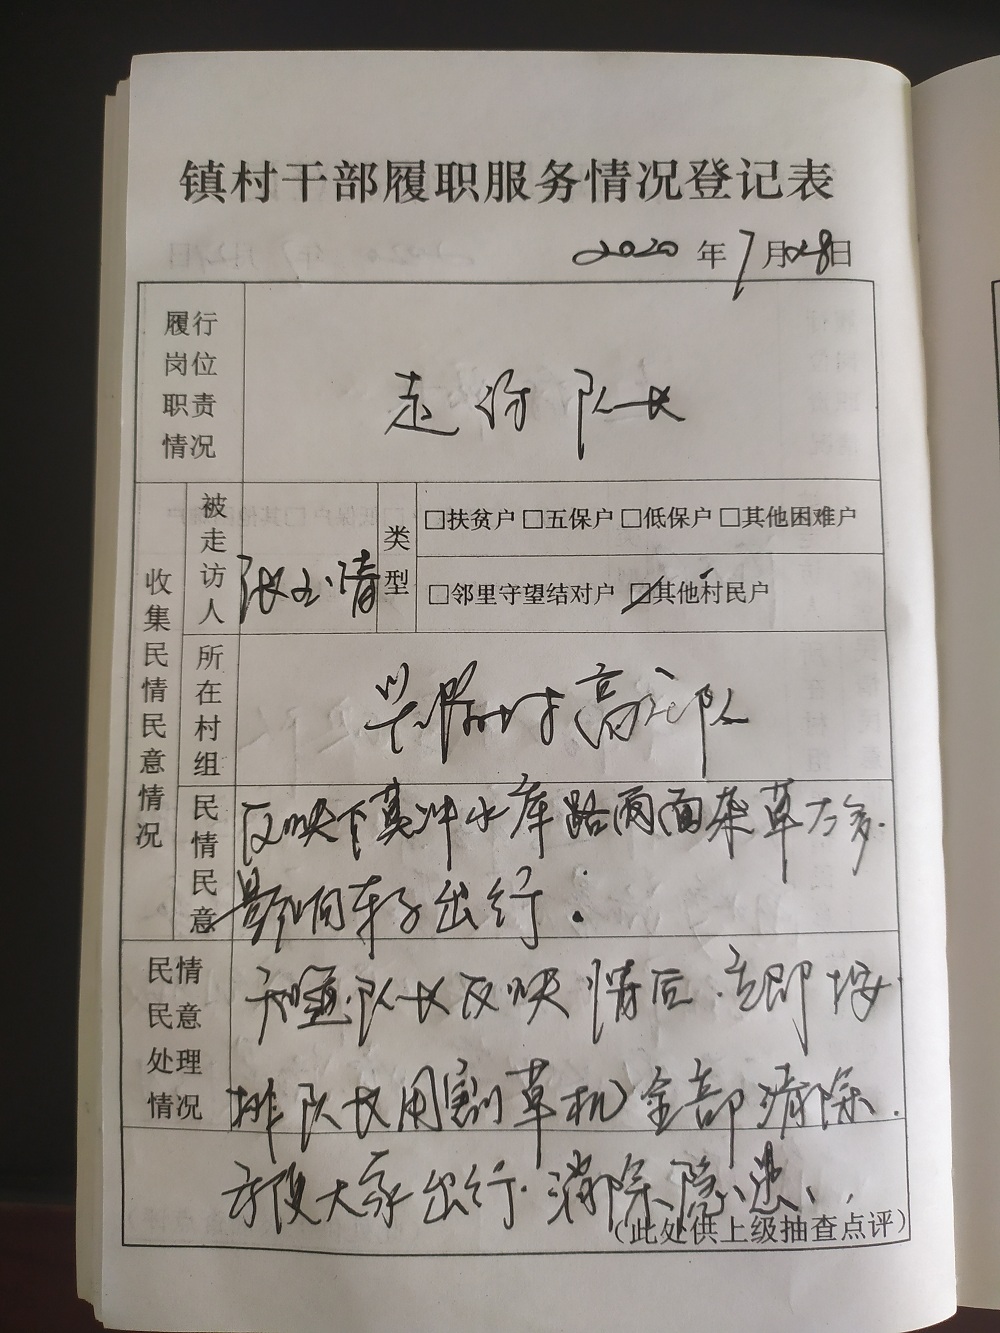 镇村干部履职服务情况登记表
2020年7月28日
履行岗位职责情况
走访队长
收集民情民意情况
被走访人
张玉清
类型
□扶贫户 □五保户 □低保户 □其他困难户
□邻里守望结对户 ☑其他村民户
所在村组
村高 队
民情民意
反映下莫冲水库路两面杂草太多.
影响车子出行.
民情民意处理情况
知道队长反映情后.立即按
排队长用割草机全部清除.
方便大家出行.消除隐患.
(此处供上级抽查点评)